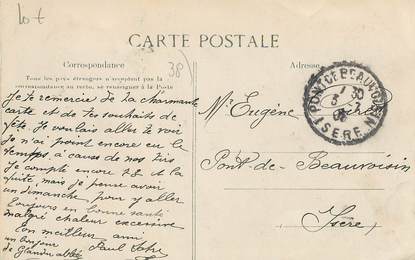 38
CARTE POSTALE
Correspondance
Adresse
Tous les pays étrangers n'acceptent pas la
correspondance au recto, se renseigner à la Poste
Je te remercie de la charmante
carte et de tes souhaits de
fête. Je voulais aller te voir
je n'ai point encore eu le
temps à cause de nos tirs
Je compte encore
mais je pense avoir
un dimanche pour y aller
Toujours en bonne santé
malgré chaleur excessive
Ton meilleur ami
un bonjour Paul
abbé
PONT-DE-BEAUVOISIN
ISERE
Mr Eugène
Pont-de-Beauvoisin
Isère